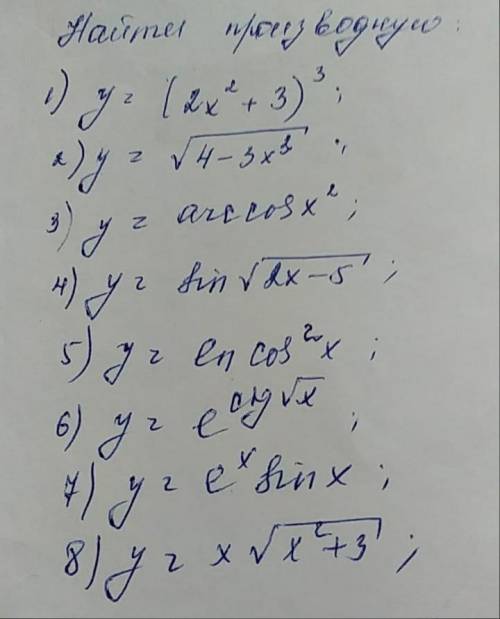 Найти производную:
1) y = (2x² + 3)³;
2) y = √(4 - 3x²);
3) y = arccos x²;
4) y = sin √(2x - 5);
5) y = ln cos² x;
6) y = e^(ctg √x);
7) y = eˣ sin x;
8) y = x √(x² + 3);